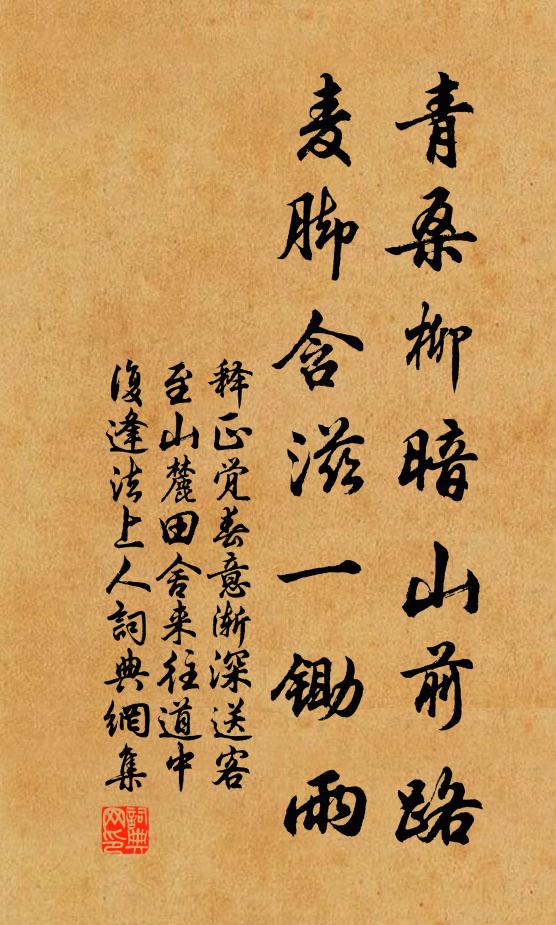 青桑柳暗山前路
麦脚含滋一锄雨
释正觉春意渐深送客
至山麓田舍来往道中
復逢法上人詞典網集
詞典
网印